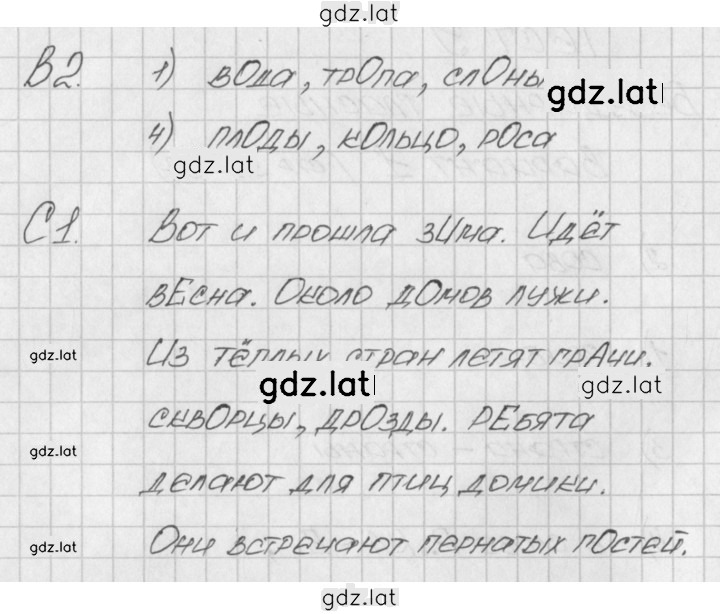 gdz.lat
В2. 1) вОда, трОпа, слОны
gdz.lat
4) плОды, кОльцо, рОса
gdz.lat
С1. Вот и прошла зИма. Идёт
вЕсна. Около дОмов лужи.
gdz.lat Из тЁплых стран летят грАчи.
gdz.lat gdz.lat
сквОрцы, дрОзды. рЕбята
gdz.lat
делают для птиц домики.
gdz.lat Они встречают пернатых гОстей.
gdz.lat